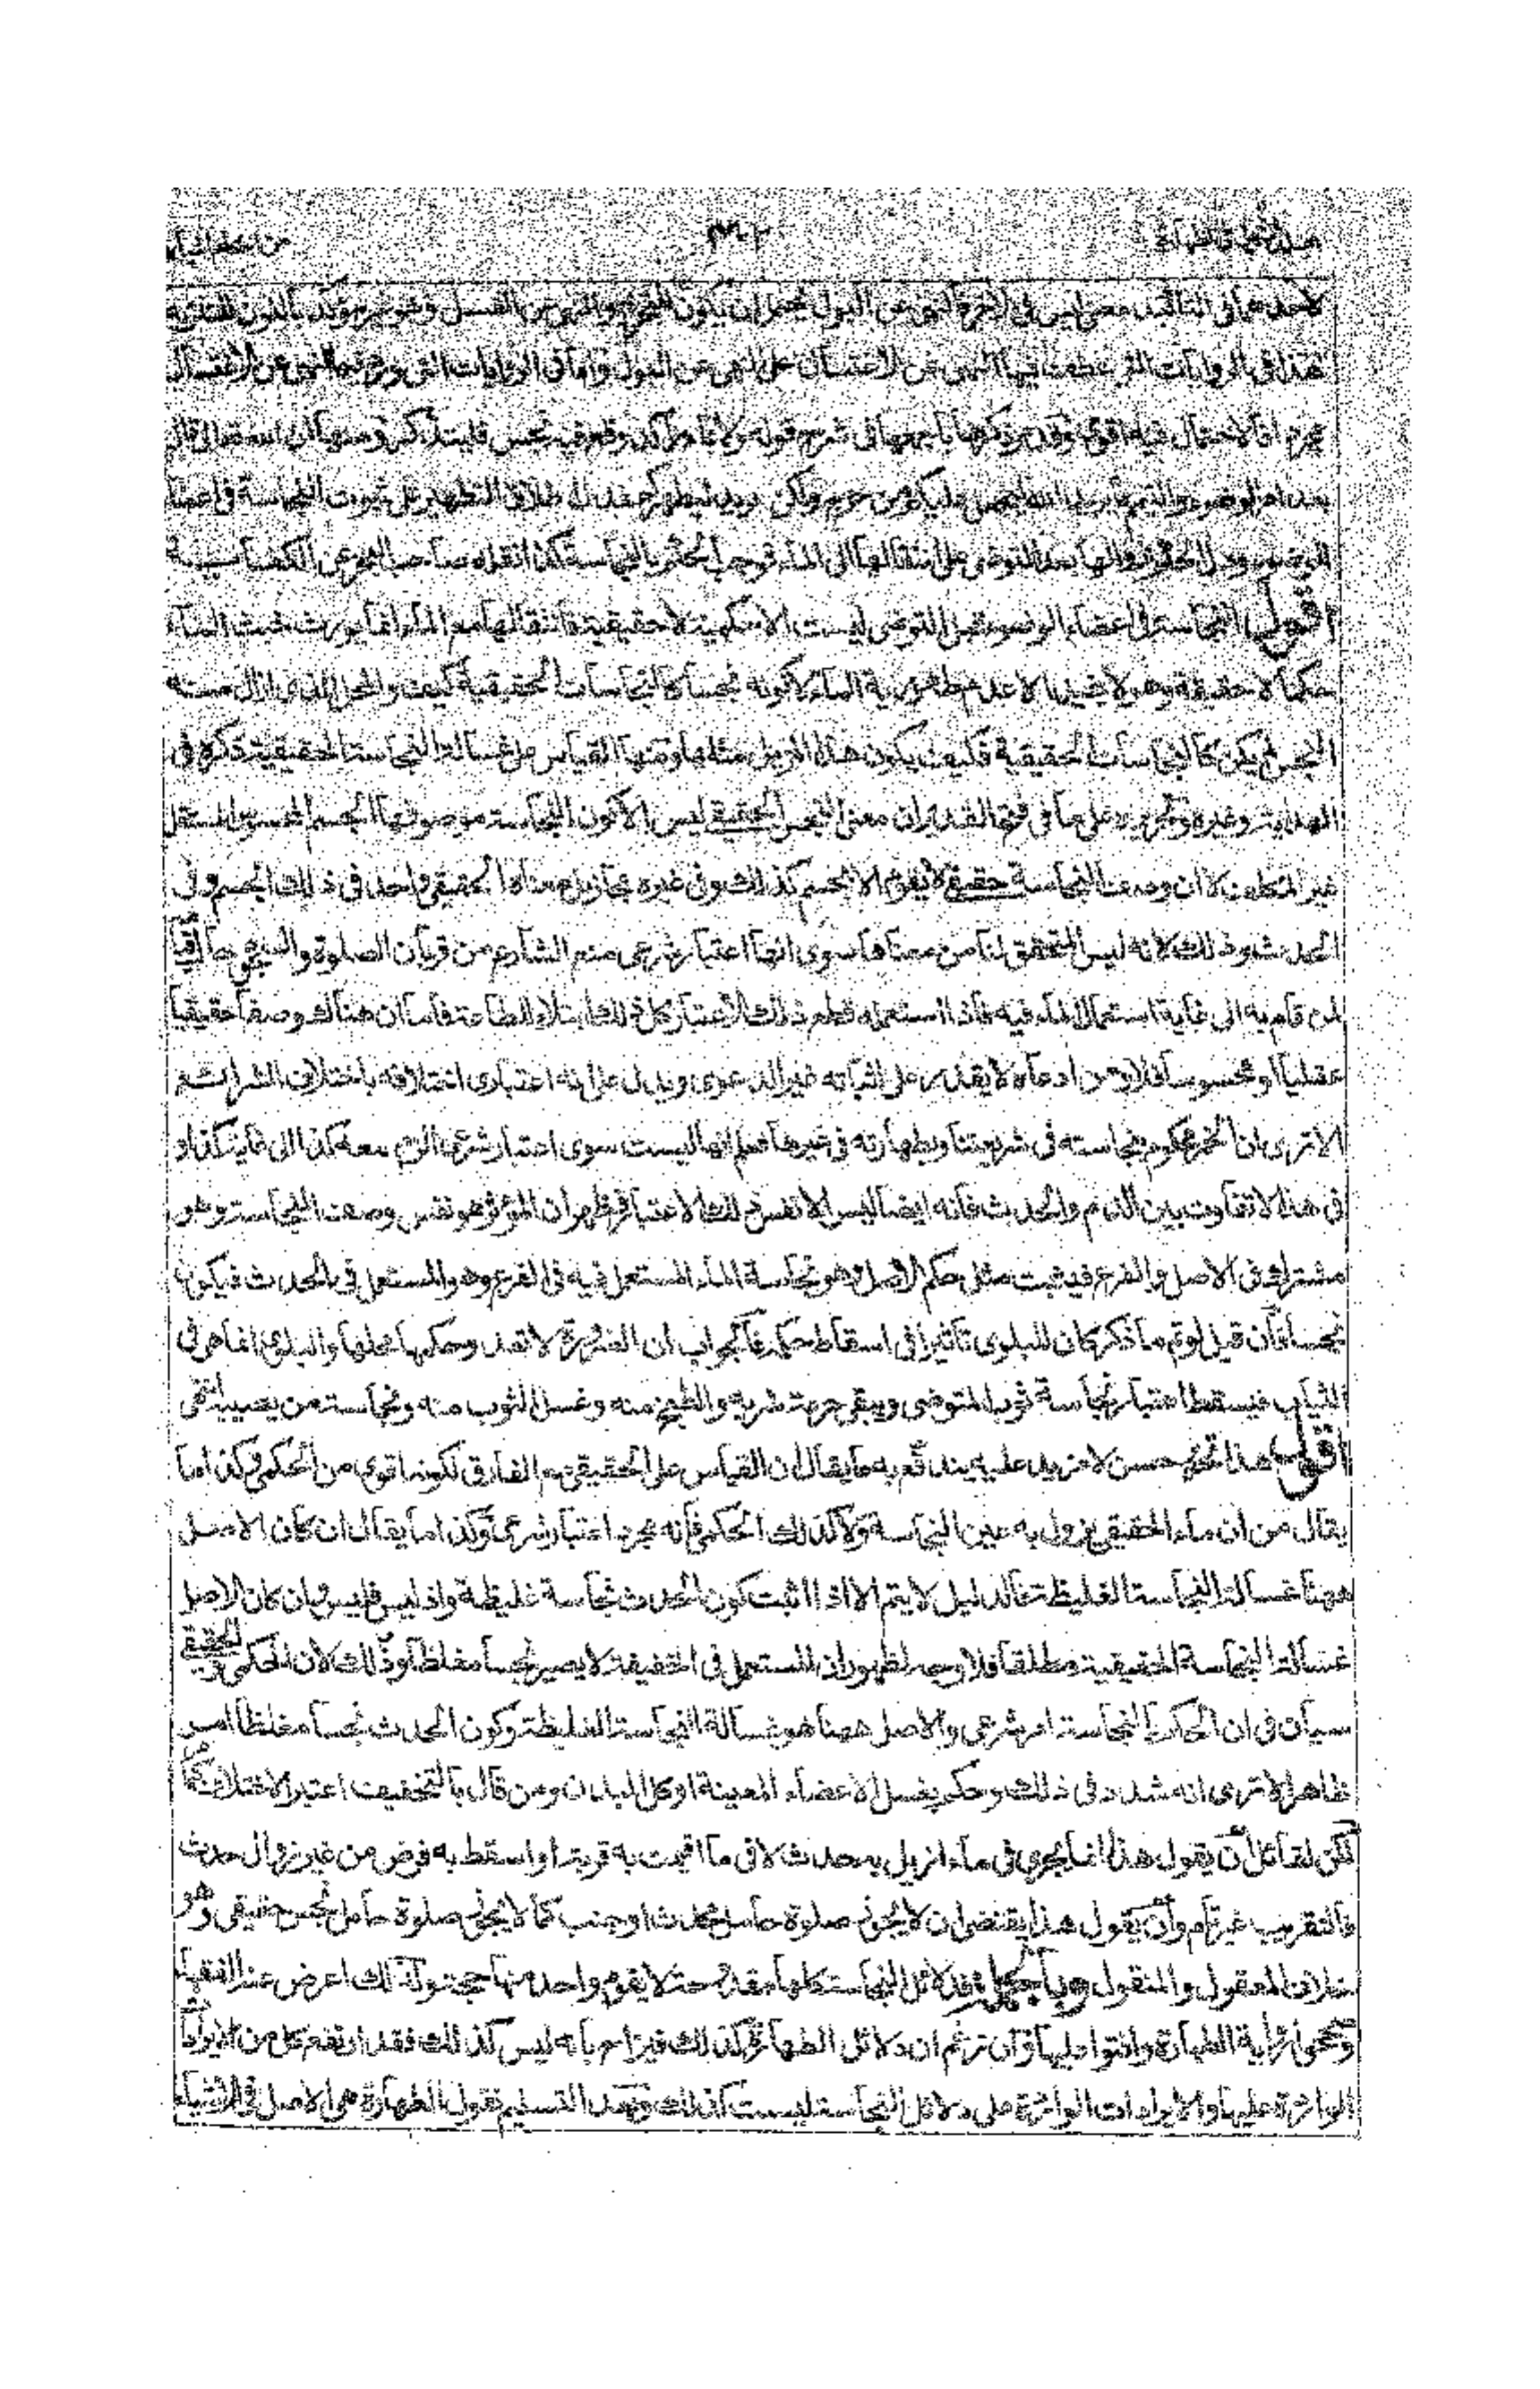 لاحدهما في التأكيد معنى ليس في الآخر النهي عن البول يحتمل ان يكون للتحريم والنهي عن الغسل وهو غير مؤكد بالنون للتنزيه
هذا في الروايات التي عطف فيها النهي عن الاغتسال على النهي عن البول واما في الروايات التي ورد فيها النهي عن الاغتسال
فالاحتمال فيه اقوى وقد مر ذكرها باجمعها في شرح قوله ولا بماء راكد وقع فيه نجس فليتذكر ومنها ان الله تعالى قال
بعد امر الوضوء والتيمم ما يريد الله ليجعل عليكم من حرج ولكن يريد ليطهركم فدل اطلاق التطهير على ثبوت النجاسة في اعضاء
الوضوء ودل الحكم بزوالها بعد التوضي على انتقالها الى الماء فوجب الحكم بالنجاسة كذا نقله صاحب البحر عن
اقول النجاسة في اعضاء الوضوء قبل التوضي ليست الا حكمية لا حقيقية فانتقالها مع الماء انما يورث خبث الماء
حكما لا حقيقة وهو لا يفيد الا عدم طهورية الماء لا كونه نجسا كالنجاسات الحقيقية كيف والمحل الذي ازال منه
النجس لم يكن كالنجاسات الحقيقية فكيف يكون هذا المزيل مثلها ومنها القياس على غسالة النجاسة الحقيقية ذكره في
الهداية وغيره وتحريره على ما في فتح القدير ان معنى النجس الحقيقي ليس الا كون النجاسة موصوفا بها الجسم المحسوس المستقل
غير المتكلف لا ان وصف النجاسة حقيقة لا يقوم الا بجسم كذلك وفي غيره مجاز بل معناه الحقيقي واحد في ذلك الجسم وفي
الحدث وذلك لانه ليس المتحقق لنا من معناها سوى انها اعتبار شرعي منع الشارع من قربان الصلوة والسجود حال قيامه
لمن قام به الى غاية استعمال الماء فيه فاذا استعمله قطع ذلك الاعتبار كل ذلك ابتلاء للطاعة فاما ان هناك وصفا حقيقيا
عقليا او محسوسا فلا ومن ادعاه لا يقدر على اثباته غير الدعوى ويدل على انه اعتباري اختلافه باختلاف الشرائع
الا ترى ان الخمر محكوم بنجاسته في شريعتنا وبطهارته في غيرها فعلم انها ليست سوى اعتبار شرعي الزم معه كذا الى غاية كذا و
في هذا لا تفاوت بين الدم والحدث فانه ايضا ليس الا نفس ذلك الاعتبار فظهر ان المؤثر هو نفس وصف النجاسة وهو
مشترك في الاصل والفرع فيثبت مثل حكم الاصل وهو نجاسة الماء المستعمل فيه في الفرع وهو المستعمل في الحدث فيكون
نجسا فان قيل لو تم ما ذكر كان للبلوى تأثير في اسقاط حكمه فالجواب ان الضرورة لا تعدو حكمها محلها والبلوى انما هي في
الثياب فيسقط اعتبار نجاسة ثوب المتوضي ويبقى حرمة شربه والطبخ منه وغسل الثوب منه ونجاسة من يصيبه انتهى
اقول هذا تحرير حسن لا مزيد عليه يندفع به ما يقال ان القياس على الحقيقي مع الفارق لكونه اقوى من الحكمي وكذا ما
يقال من ان ماء الحقيقي يزول به عين النجاسة ولا كذلك الحكمي فانه مجرد اعتبار شرعي وكذا ما يقال ان كان الاصل
ههنا غسالة النجاسة الغليظة فالدليل لا يتم الا اذا اثبت كون الحدث نجاسة غليظة واذ ليس فليس وان كان الاصل
غسالة النجاسة الحقيقية مطلقا فلا وجه لظهور ان المستعمل في الخفيفة لا يصير نجسا مغلظا وذلك لان الحكمي والحقيقي
سيان في ان الحكم بالنجاسة امر شرعي والاصل ههنا هو غسالة النجاسة الغليظة وكون الحدث نجسا مغلظا امر
ظاهر الا ترى انه شدد في ذلك وحكم بغسل الاعضاء المعينة او كل البدن ومن قال بالتخفيف اعتبر الاختلاف
لكن لقائل ان يقول هذا انما يجري في ماء ازيل به حدث لا في ما اقيمت به قربة او اسقط به فرض من غير زوال حدث
فالتقريب غير تام وان يقول هذا يقتضي ان لا يجوز صلوة حامل محدث او جنب كما لا يجوز صلوة حامل نجس حقيقي وهو
خلاف المعقول والمنقول وبالجملة فدلائل النجاسة كلها مقدوحة لا يقوم واحد منها حجة ولذلك اعرض عنه الفقهاء
ورجحوا رواية الطهارة وافتوا عليها وان زعم ان دلائل الطهارة كذلك فيزاح بانه ليس كذلك فقد اندفع كل من الايرادات
الواردة عليها والايرادات الواردة على دلائل النجاسة ليست كذلك وبعد التسليم نقول الطهارة هي الاصل في الاشياء